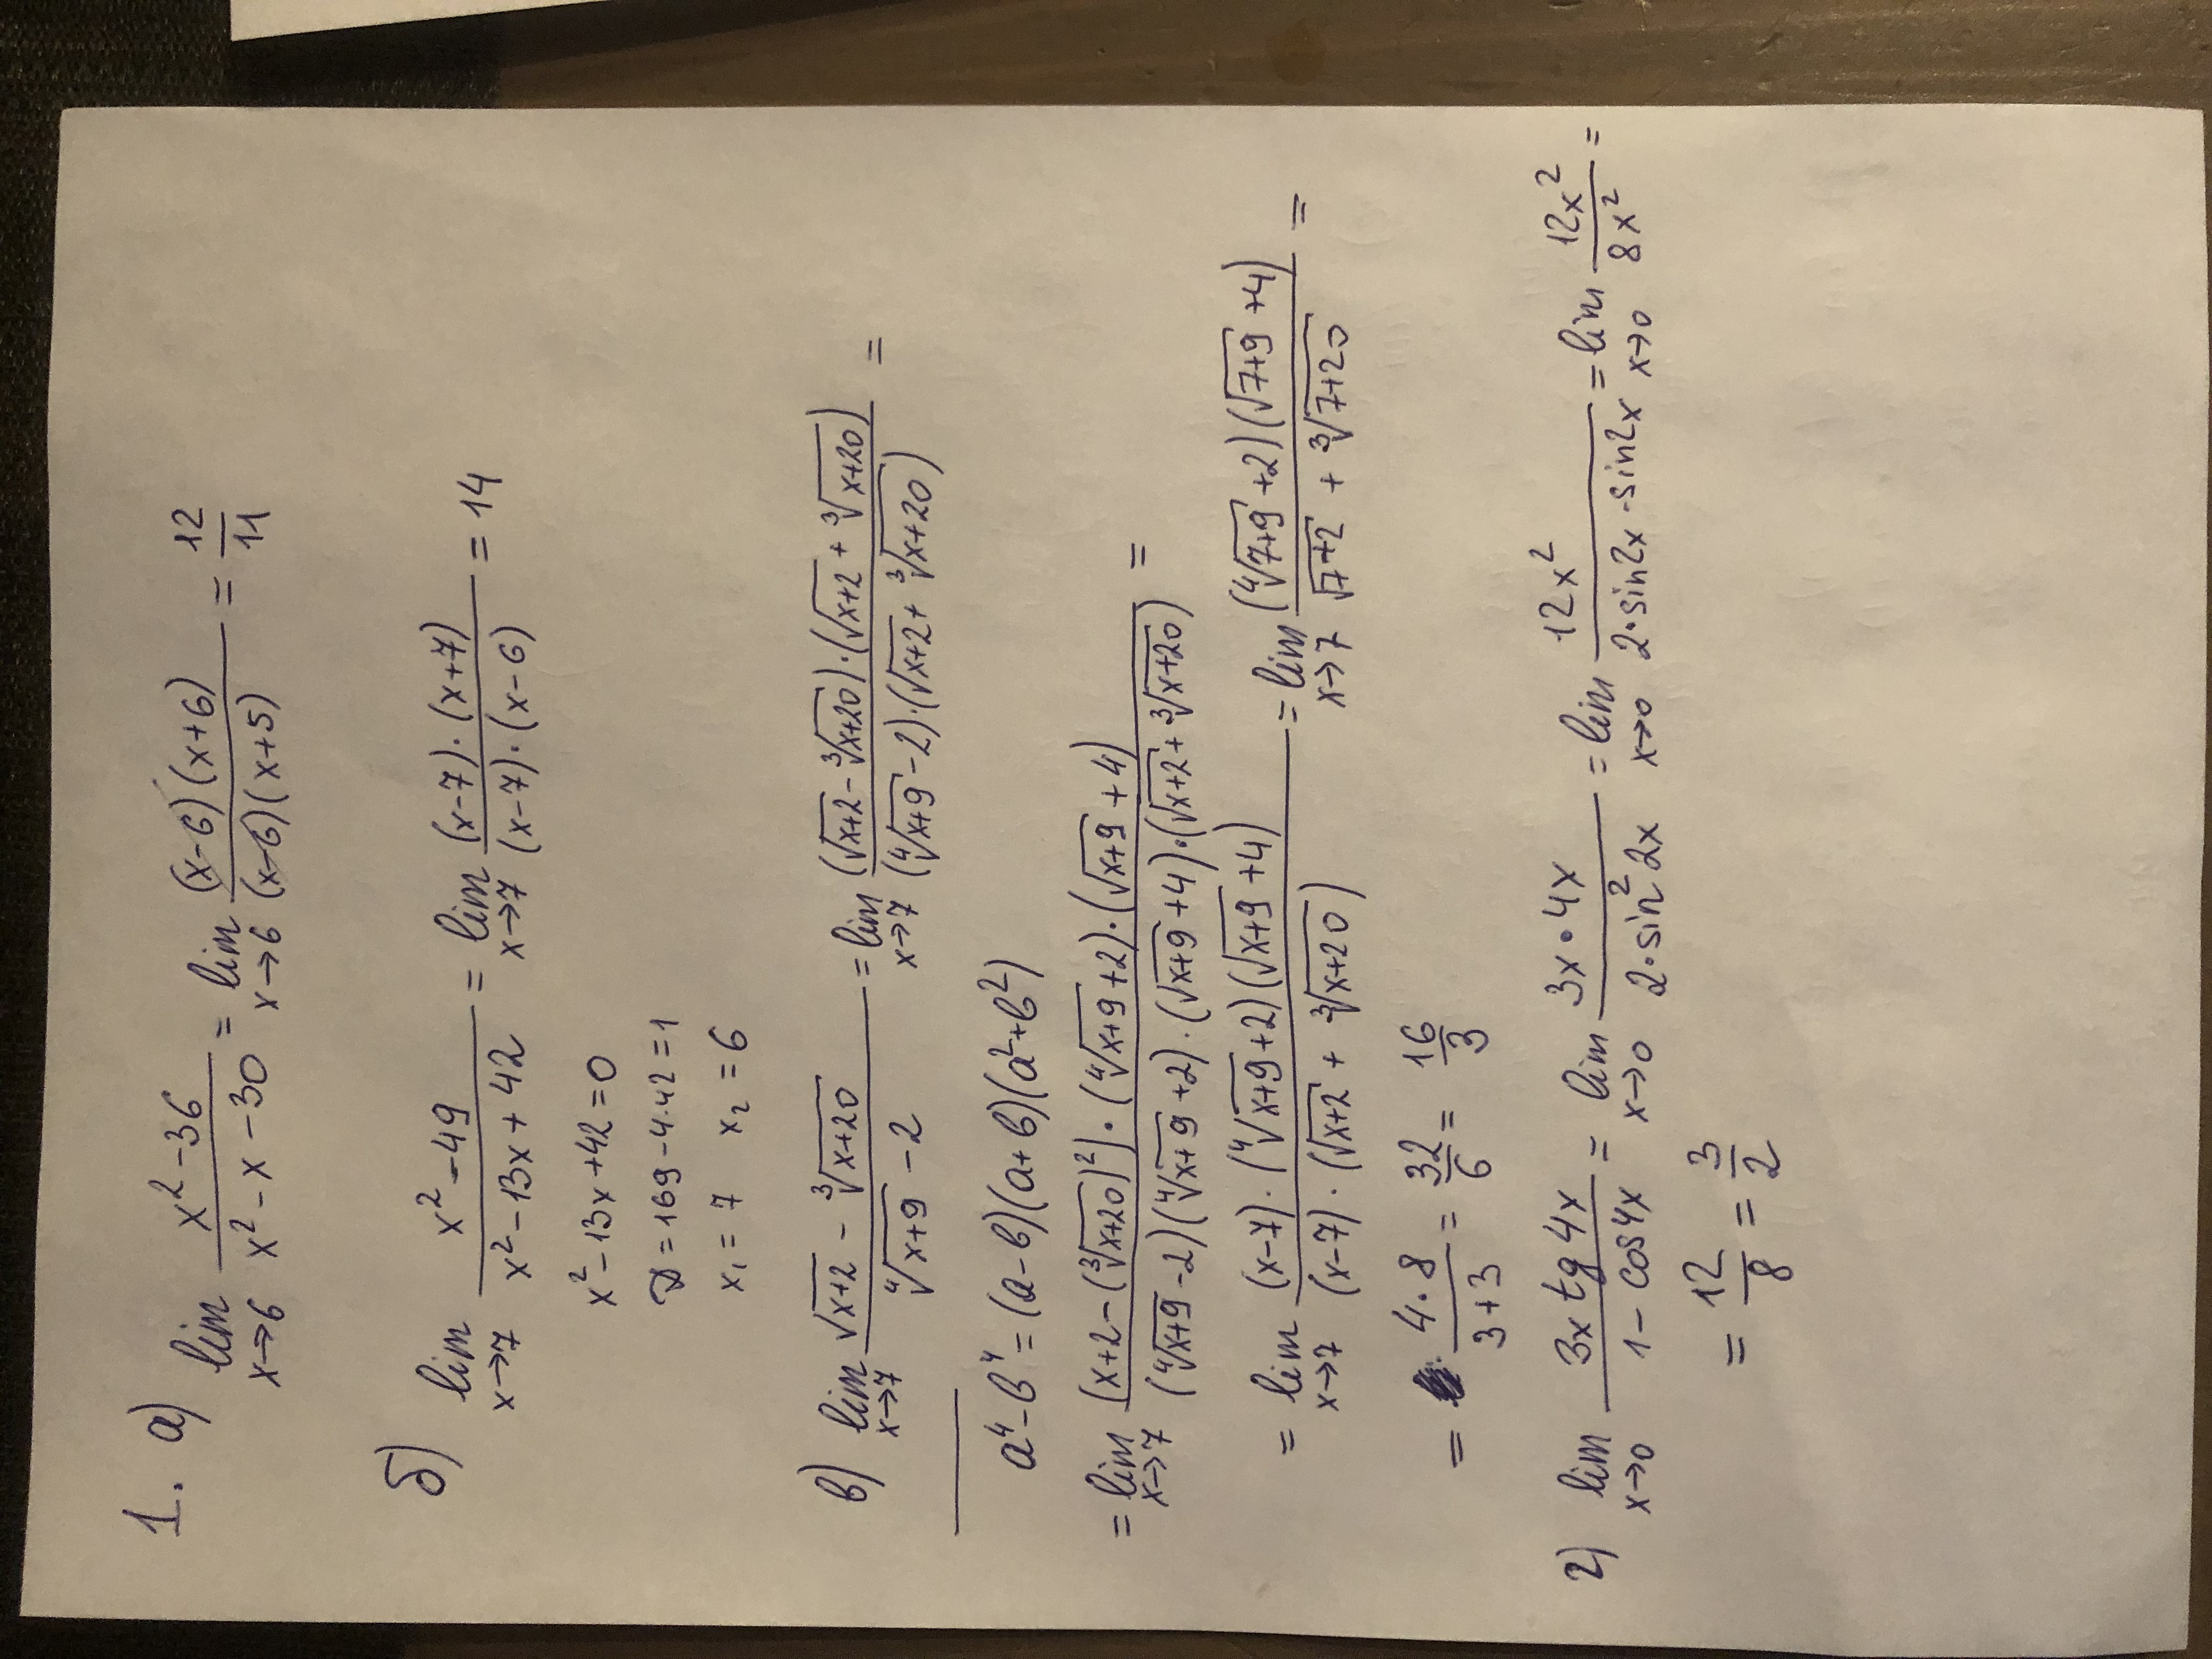 1. а) lim x→6 (x² − 36)/(x² − x − 30) = lim x→6 ((x−6)(x+6))/((x−6)(x+5)) = 12/11
б) lim x→7 (x² − 49)/(x² − 13x + 42) = lim x→7 ((x−7)·(x+7))/((x−7)·(x−6)) = 14
x² − 13x + 42 = 0
D = 169 − 4·42 = 1
x₁ = 7 x₂ = 6
в) lim x→7 (√(x+2) − ∛(x+20))/(∜(x+9) − 2) = lim x→7 ((√(x+2) − ∛(x+20))·(√(x+2) + ∛(x+20)))/((∜(x+9) − 2)·(√(x+2) + ∛(x+20))) =
a⁴ − b⁴ = (a − b)(a + b)(a² + b²)
= lim x→7 ((x+2 − (∛(x+20))²)·(∜(x+9) + 2)·(√(x+9) + 4))/((∜(x+9) − 2)(∜(x+9) + 2)·(√(x+9) + 4)·(√(x+2) + ∛(x+20))) =
= lim x→7 ((x−7)·(∜(x+9) + 2)(√(x+9) + 4))/((x−7)·(√(x+2) + ∛(x+20))) = lim x→7 ((∜(7+9) + 2)(√(7+9) + 4))/(√(7+2) + ∛(7+20)) =
= (4·8)/(3+3) = 32/6 = 16/3
г) lim x→0 (3x tg 4x)/(1 − cos4x) = lim x→0 (3x·4x)/(2·sin² 2x) = lim x→0 (12x²)/(2·sin2x·sin2x) = lim x→0 (12x²)/(8x²) =
= 12/8 = 3/2